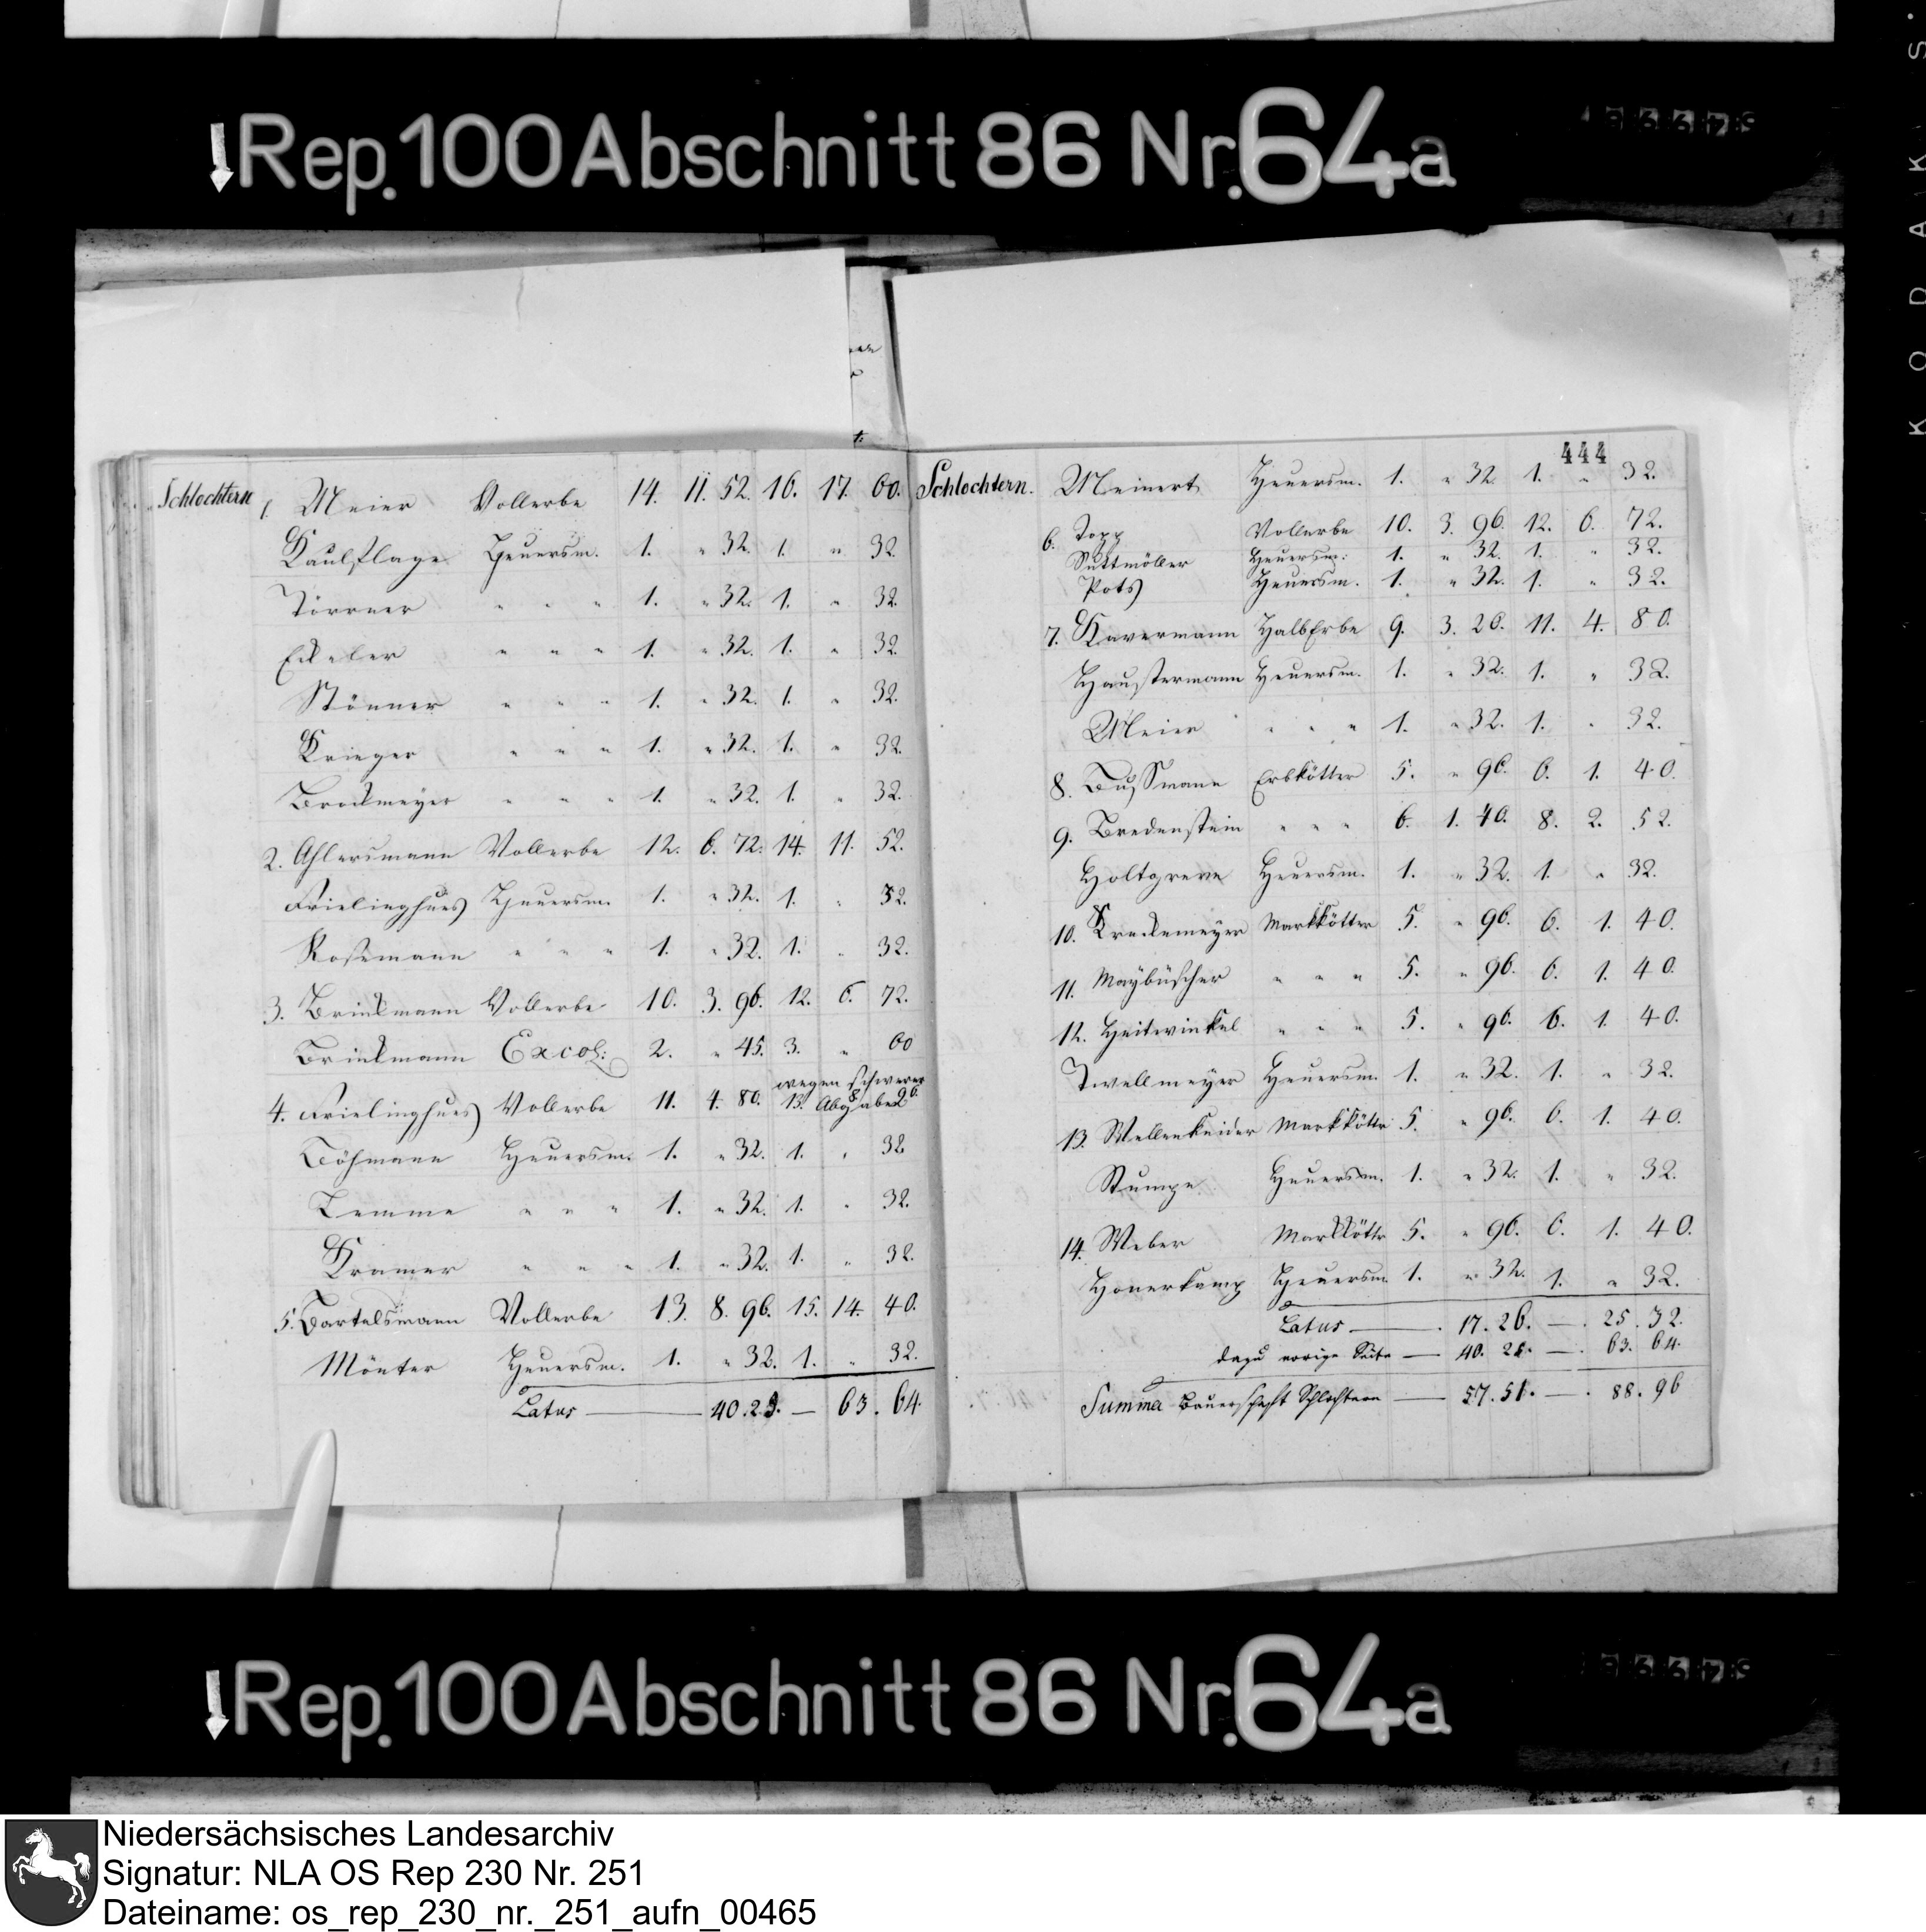 Rep. 100 Abschnitt 86 Nr. 64a
KODAK S.
444
Schlochtern 1. Meier Vollerbe 14. 11. 52. 16. 17. 60.
Kaulflage Heuersm. 1. " 32. 1. " 32.
Törrner " " " 1. " 32. 1. " 32.
Eckeler " " " 1. " 32. 1. " 32.
Stönner " " " 1. " 32. 1. " 32.
Krieger " " " 1. " 32. 1. " 32.
Brockmeyer " " " 1. " 32. 1. " 32.
2. Ahlersmann Vollerbe 12. 6. 72. 14. 11. 52.
Frielinghues Heuersm. 1. " 32. 1. " 32.
Rosemann " " " 1. " 32. 1. " 32.
3. Brinckmann Vollerbe 10. 3. 96. 12. 6. 72.
Brinckmann Excol: 2. " 45. 3. " 60
wegen schwerer
4. Frielinghues Vollerbe 11. 4. 80. 13. Abgaben
Böhmann Heuersm. 1. " 32. 1. " 32
Temme " " " 1. " 32. 1. " 32.
Kramer " " " 1. " 32. 1. " 32.
5. Bartelsmann Vollerbe 13. 8. 96. 15. 14. 40.
Mönter Heuersm. 1. " 32. 1. " 32.
Latus — 40. — 63. 64.
Schlochtern. Meinert Heuersm. 1. " 32. 1. " 32.
6. Topp Vollerbe 10. 3. 96. 12. 6. 72.
Suttmöller Heuersm: 1. " 32. 1. " 32.
Pots Heuersm. 1. " 32. 1. " 32.
7. Kavermann HalbErbe 9. 3. 20. 11. 4. 80.
Haustermann Heuersm. 1. " 32. 1. " 32.
Meier " " " 1. " 32. 1. " 32.
8. Bußmann Erbkötter 5. " 96. 6. 1. 40.
9. Bredenstein " " " 6. 1. 40. 8. 2. 52.
Holtgreve Heuersm. 1. " 32. 1. " 32.
10. Kreckemeyer Markkötter 5. " 96. 6. 1. 40.
11. Maybüscher " " " 5. " 96. 6. 1. 40.
12. Heitwinkel " " " 5. " 96. 6. 1. 40.
Twellmeyer Heuersm. 1. " 32. 1. " 32.
13. Wellenkneider Markkötter 5. " 96. 6. 1. 40.
Stumpe Heuersm. 1. " 32. 1. " 32.
14. Weber Markkötter 5. " 96. 6. 1. 40.
Honerkamp Heuersm. 1. " 32. 1. " 32.
Latus — 17. 26. — 25. 32.
dazu vorige Seite — 40. — 63. 64.
Summa Bauerschaft Schlochtern — 57. 51. — 88. 96
Rep. 100 Abschnitt 86 Nr. 64a
Niedersächsisches Landesarchiv
Signatur: NLA OS Rep 230 Nr. 251
Dateiname: os_rep_230_nr._251_aufn_00465